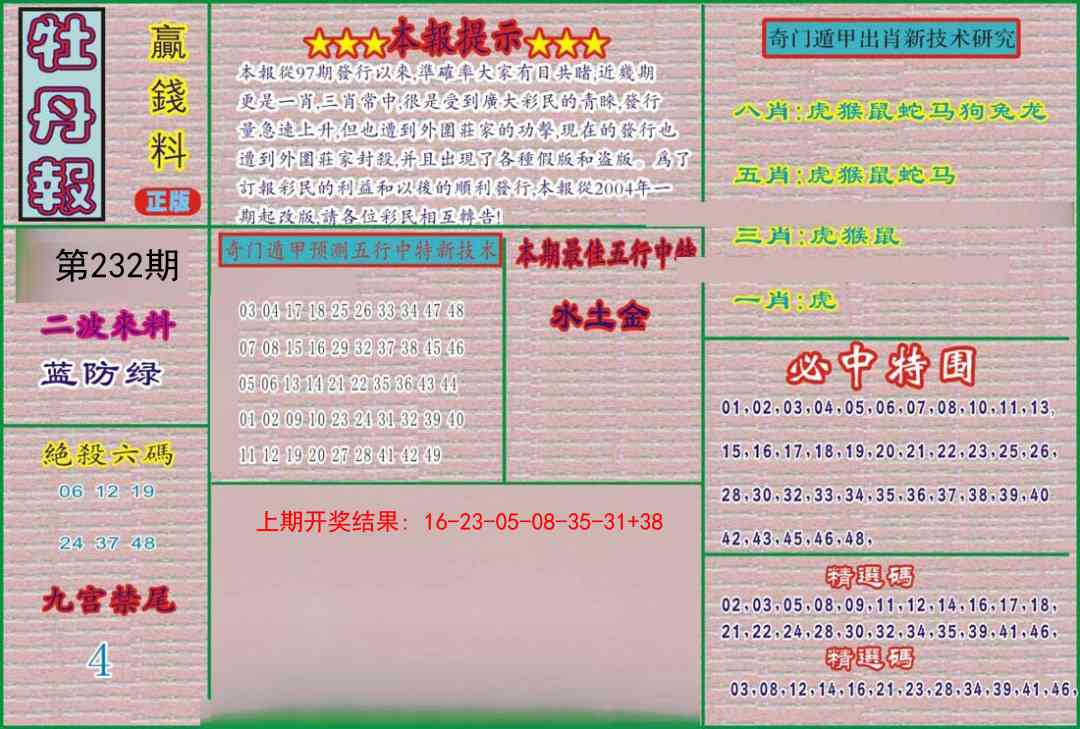 牡丹報
贏錢料
正版
第232期
二波來料
蓝防绿
絕殺六碼
06 12 19
24 37 48
九宫禁尾
4
★★★本報提示★★★
本報從97期發行以來,準確率大家有目共睹,近幾期
更是一肖,三肖常中,很是受到廣大彩民的青睞,發行
量急速上升,但也遭到外圍莊家的功擊,現在的發行也
遭到外圍莊家封殺,并且出現了各種假版和盗版。爲了
訂報彩民的利益和以後的順利發行,本報從2004年一
期起改版,請各位彩民相互轉告!
奇门遁甲预测五行中特新技术
03 04 17 18 25 26 33 34 47 48
07 08 15 16 29 32 37 38 45 46
05 06 13 14 21 22 35 36 43 44
01 02 09 10 23 24 31 32 39 40
11 12 19 20 27 28 41 42 49
本期最佳五行中特
水土金
上期开奖结果：16-23-05-08-35-31+38
奇门遁甲出肖新技术研究
八肖:虎猴鼠蛇马狗兔龙
五肖:虎猴鼠蛇马
三肖:虎猴鼠
一肖:虎
必中特围
01,02,03,04,05,06,07,08,10,11,13,
15,16,17,18,19,20,21,22,23,25,26,
28,30,32,33,34,35,36,37,38,39,40
42,43,45,46,48,
精選碼
02,03,05,08,09,11,12,14,16,17,18,
21,22,24,28,30,32,34,35,39,41,46,
精選碼
03,08,12,14,16,21,23,28,34,39,41,46,